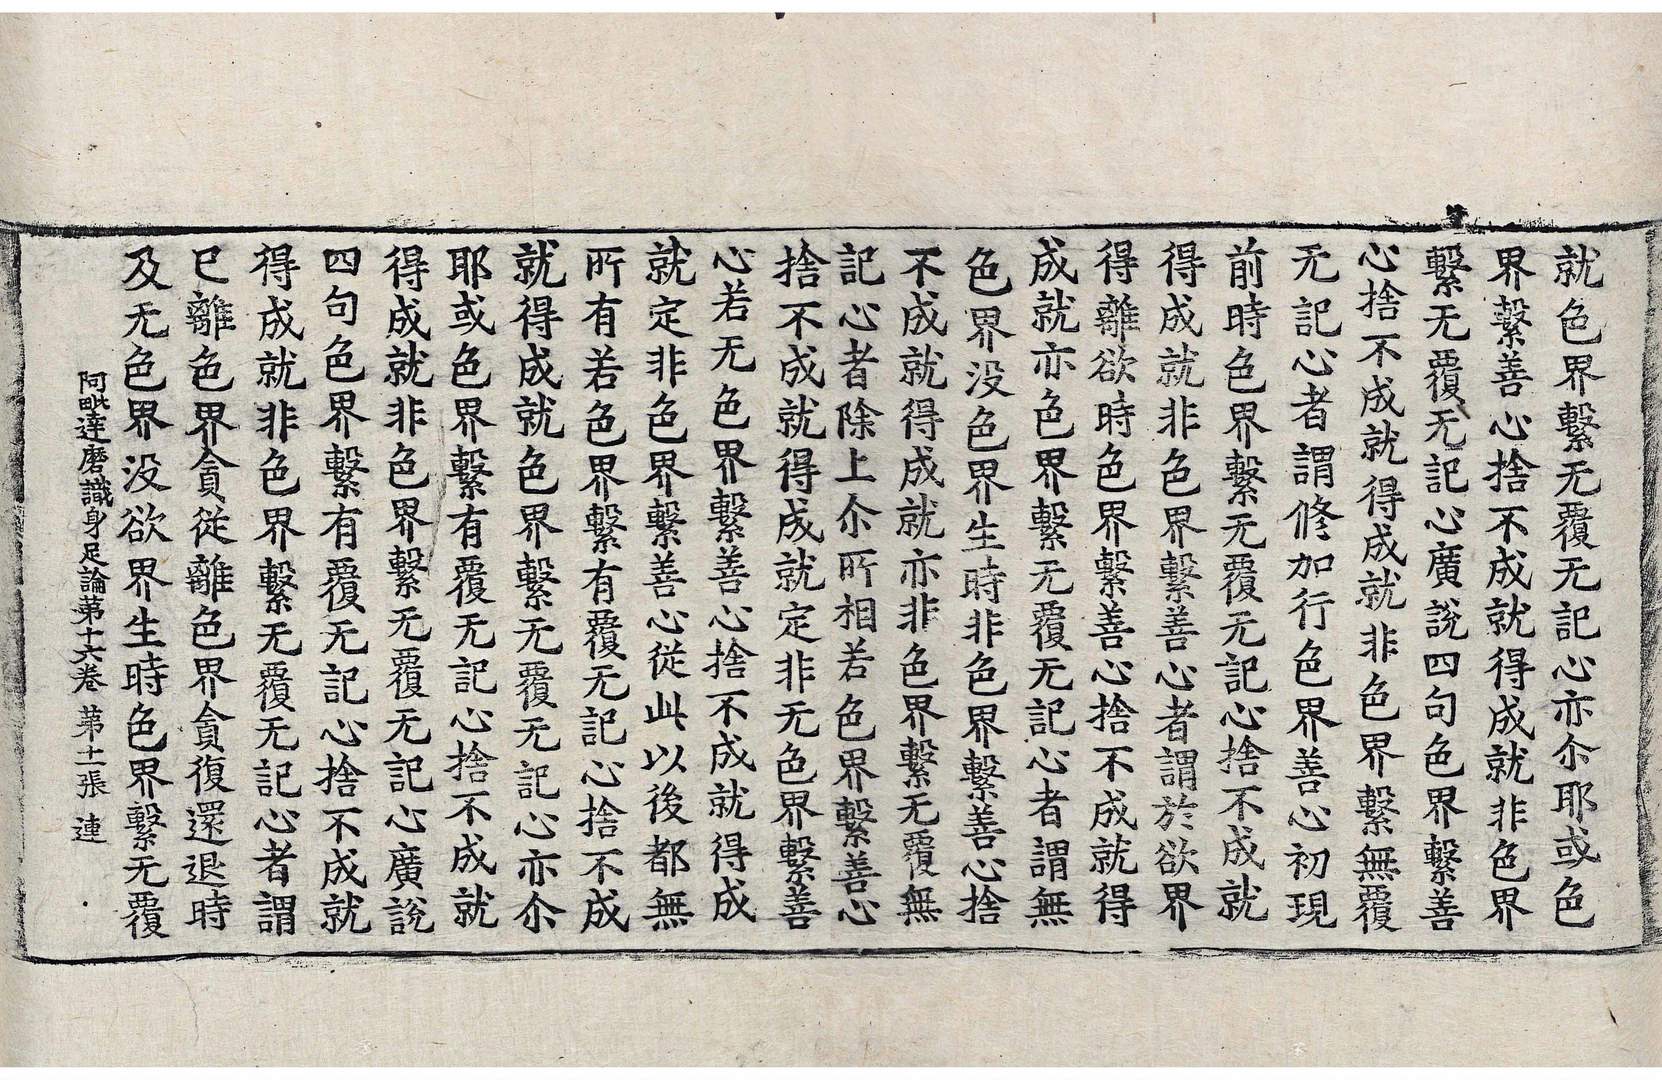 就色界繫无覆无記心亦尒耶或色
界繫善心捨不成就得成就非色界
繫无覆无記心廣說四句色界繫善
心捨不成就得成就非色界繫無覆
无記心者謂修加行色界善心初現
前時色界繫无覆无記心捨不成就
得成就非色界繫善心者謂於欲界
得離欲時色界繫善心捨不成就得
成就亦色界繫无覆无記心者謂無
色界没色界生時非色界繫善心捨
不成就得成就亦非色界繫无覆無
記心者除上尒所相若色界繫善心
捨不成就得成就定非无色界繫善
心若无色界繫善心捨不成就得成
就定非色界繫善心從此以後都無
所有若色界繫有覆无記心捨不成
就得成就色界繫无覆无記心亦尒
耶或色界繫有覆无記心捨不成就
得成就非色界繫无覆无記心廣說
四句色界繫有覆无記心捨不成就
得成就非色界繫无覆无記心者謂
已離色界貪從離色界貪復還退時
及无色界没欲界生時色界繫无覆
阿毗達磨識身足論第十六卷 第十一張 連